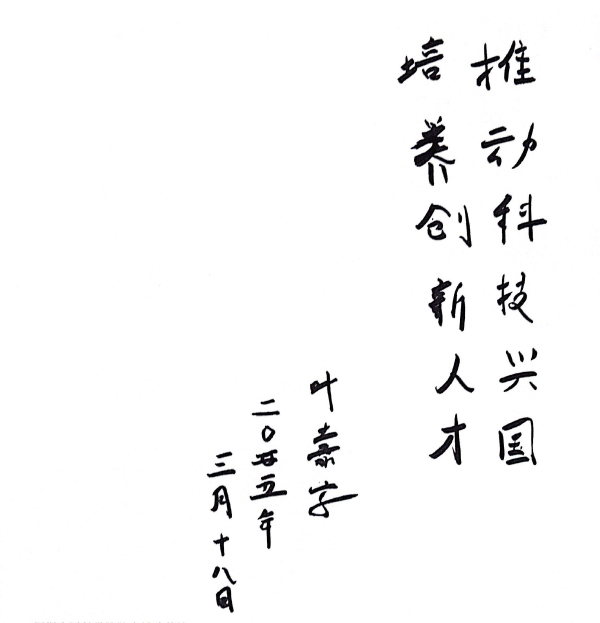 推动科技兴国
培养创新人才
叶嘉字
二〇廿五年
三月十八日